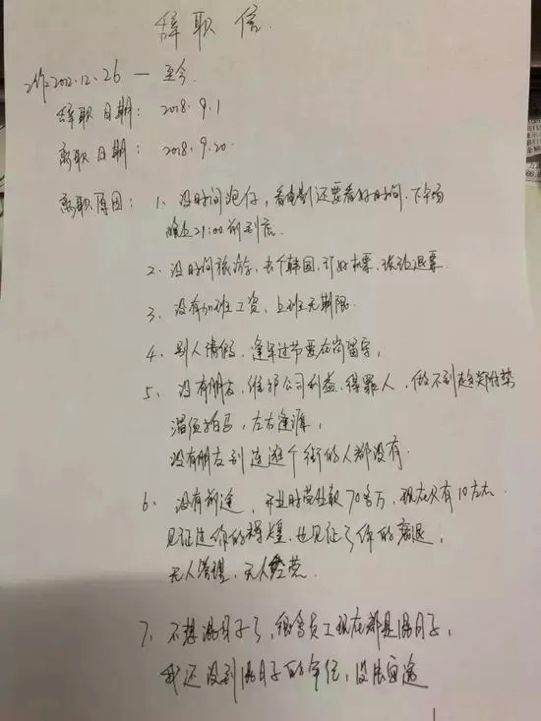 辞职信
工作2012.12.26 — 至今
辞职日期: 2018.9.1
离职日期: 2018.9.20
离职原因: 1、没时间泡仔,看电影还要看好时间,下午场
晚上21:00前到店
2、没时间旅游,去个韩国,订好机票,被迫退票
3、没有加班工资,上班无期限
4、别人请假,逢年过节要在岗留守,
5、没有朋友,维护公司利益,得罪人,做不到趋炎附势
溜须拍马,左右逢源,
没有朋友到连逛个街的人都没有
6、没有前途,开业时营业额70多万,现在只有10左右
见证过你的辉煌,也见证了你的衰退,
无人管理,无人经营
7、不想混日子了,很多员工现在都是混日子,
我还没到混日子的年纪,没法